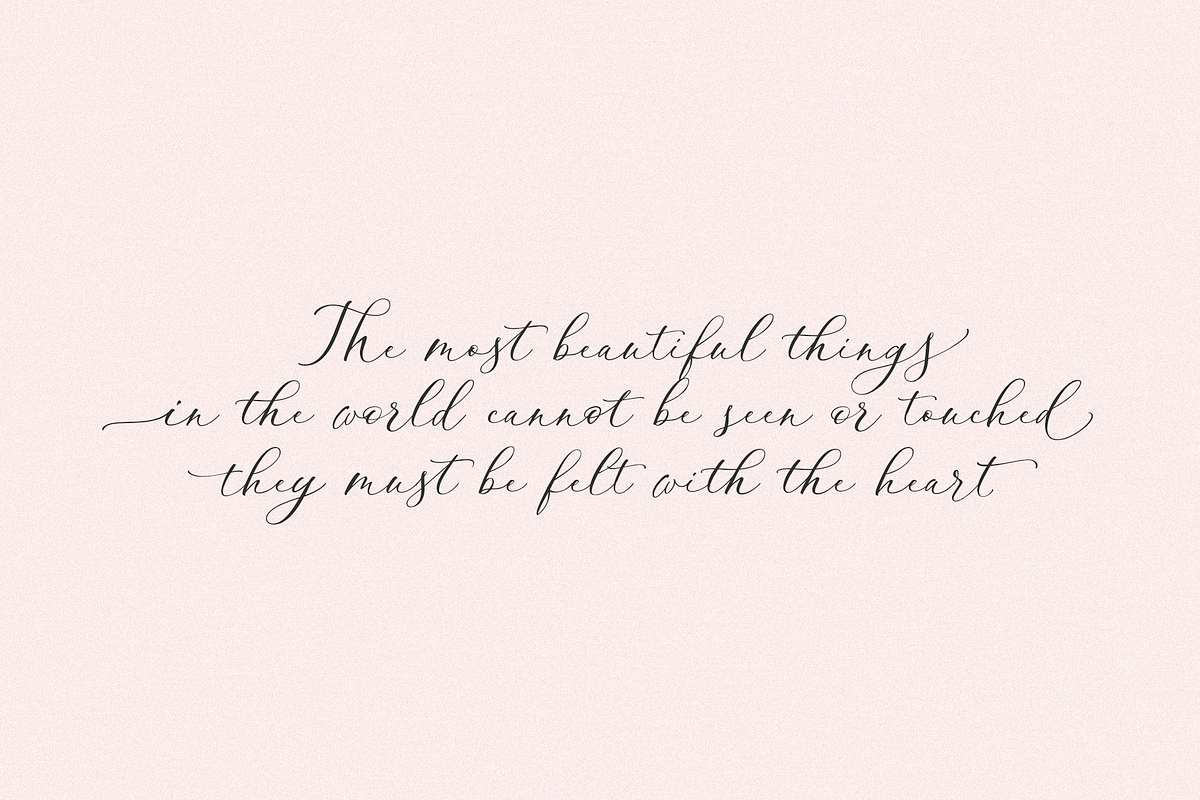 The most beautiful things
in the world cannot be seen or touched
they must be felt with the heart